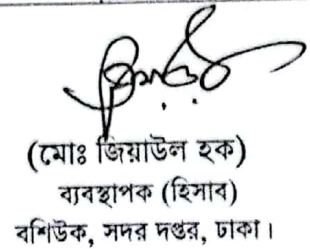 (মোঃ জিয়াউল হক)
ব্যবস্থাপক (হিসাব)
বশিউক, সদর দপ্তর, ঢাকা।